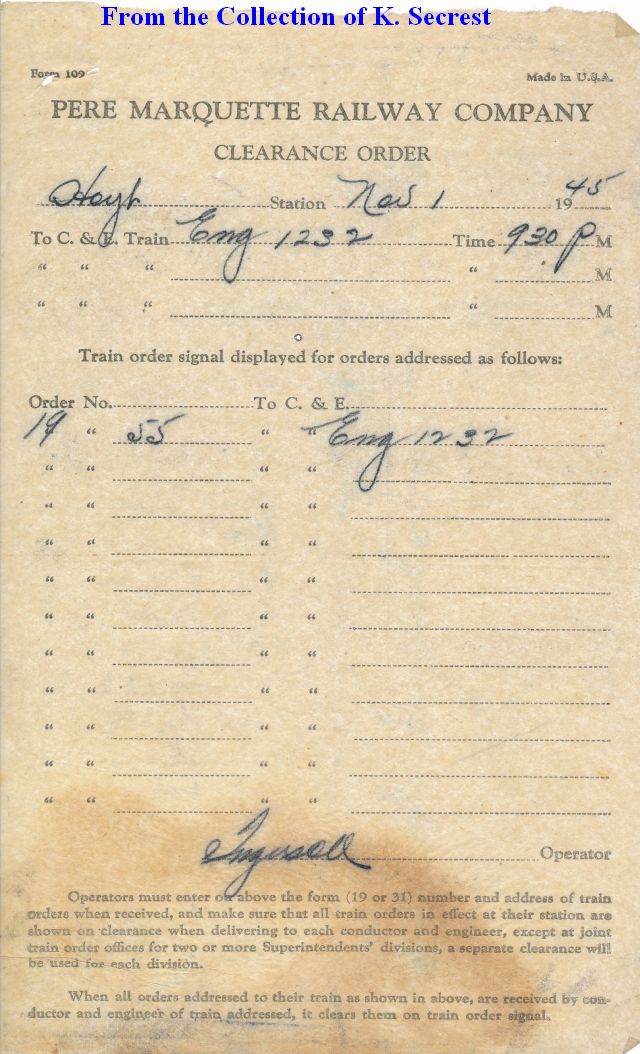 From the Collection of K. Secrest
Form 109 Made in U.S.A.
PERE MARQUETTE RAILWAY COMPANY
CLEARANCE ORDER
Hoyt Station Nov 1 1945
To C. & E. Train Eng 1232 Time 930 P M
“ “ “ “ M
“ “ “ “ M
Train order signal displayed for orders addressed as follows:
Order No. To C. & E.
19 “ 55 “ “ Eng 1232
“ “ “ “
“ “ “ “
“ “ “ “
“ “ “ “
“ “ “ “
“ “ “ “
“ “ “ “
“ “ “ “
“ “ “ “
“ “ “ “
Ingersoll Operator
Operators must enter on above the form (19 or 31) number and address of train
orders when received, and make sure that all train orders in effect at their station are
shown on clearance when delivering to each conductor and engineer, except at joint
train order offices for two or more Superintendents' divisions, a separate clearance will
be used for each division.
When all orders addressed to their train as shown in above, are received by con-
ductor and engineer of train addressed, it clears them on train order signal.